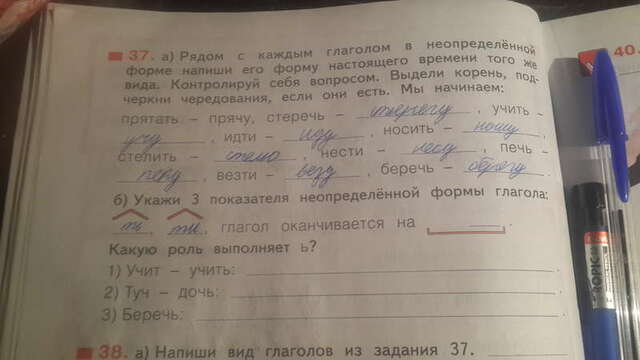 37. а) Рядом с каждым глаголом в неопределённой
форме напиши его форму настоящего времени того же
вида. Контролируй себя вопросом. Выдели корень, под-
черкни чередования, если они есть. Мы начинаем:
прятать – прячу, стеречь – стерегу, учить –
учу, идти – иду, носить – ношу,
стелить – стелю, нести – несу, печь –
пеку, везти – везу, беречь – берегу.
б) Укажи 3 показателя неопределённой формы глагола:
ть, ти, глагол оканчивается на
Какую роль выполняет ь?
1) Учит – учить:
2) Туч – дочь:
3) Беречь:
38. а) Напиши вид глаголов из задания 37.
40.
TROPIC